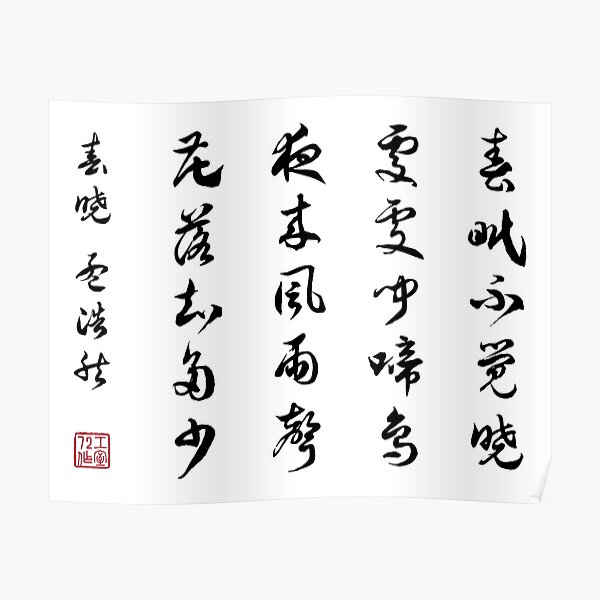 春眠不觉晓
处处闻啼鸟
夜来风雨声
花落知多少
春晓 孟浩然